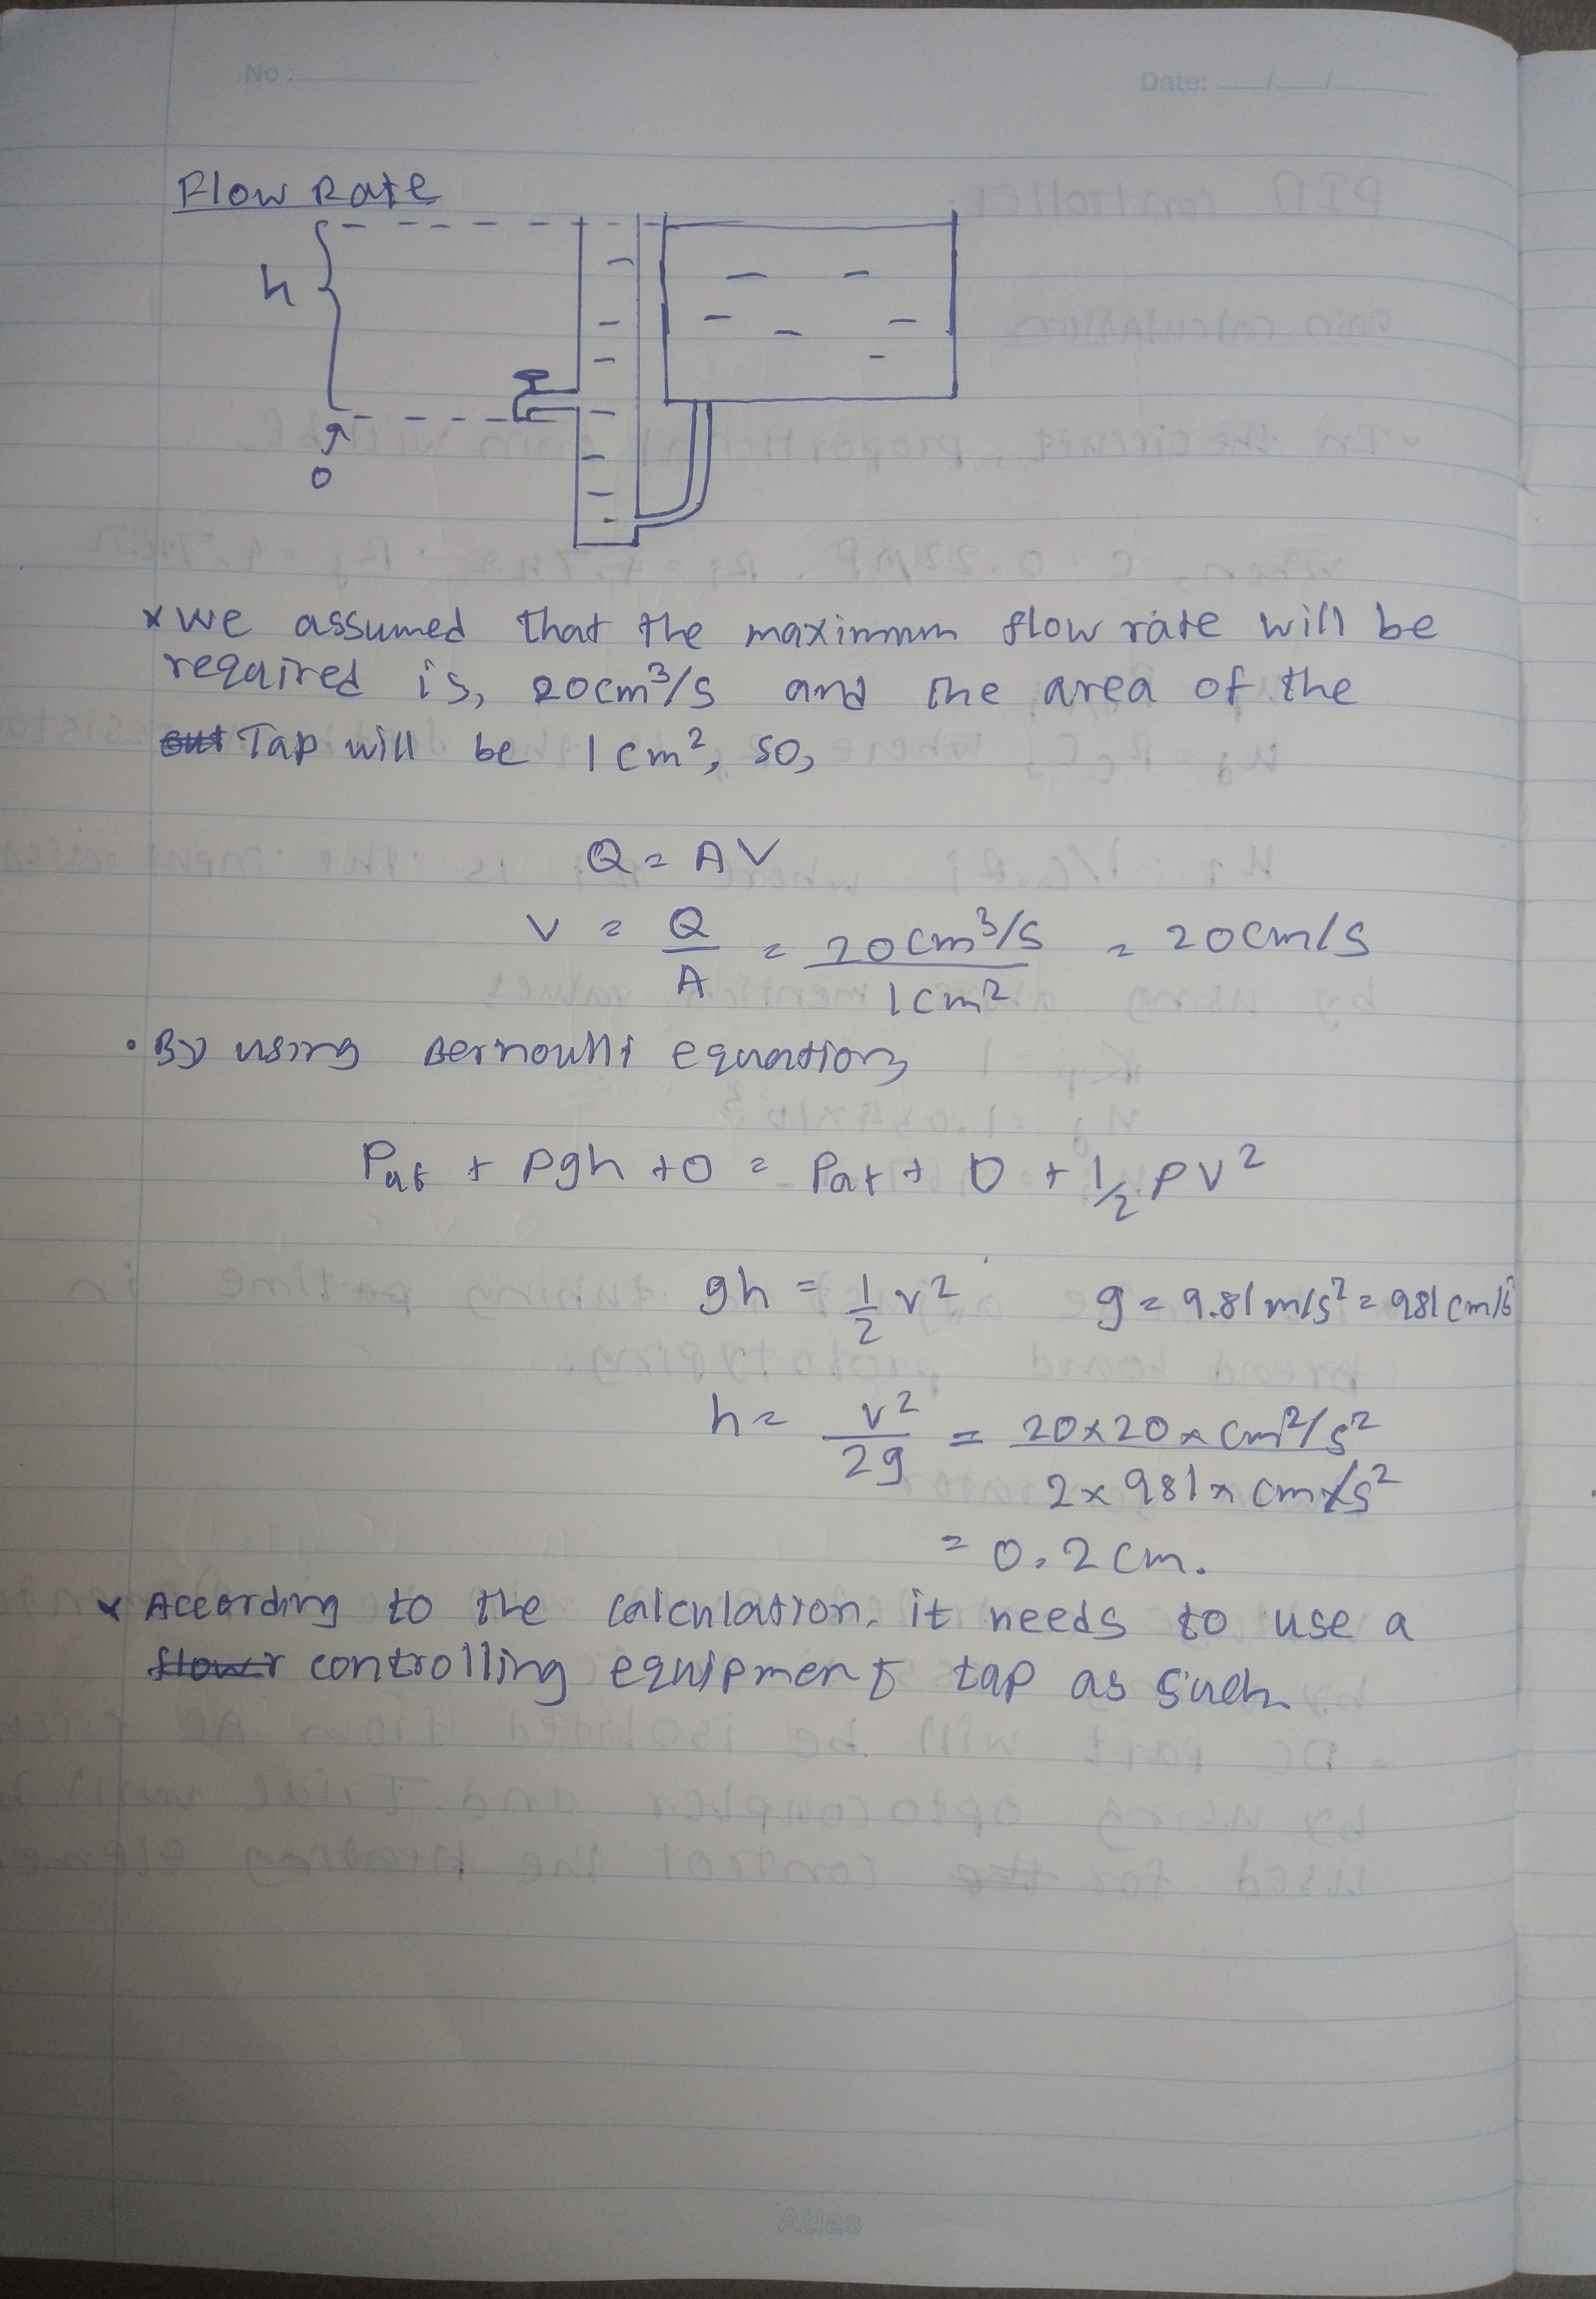 No:
Date: __/__/__
Flow Rate
h
0
* We assumed that the maximum flow rate will be
required is, 20cm³/s and the area of the
Tap will be 1cm², so,
Q = AV
V = Q/A = 20cm³/s / 1cm² = 20cm/s
• By using Bernoulli equation,
Pat + ρgh + 0 = Pat + 0 + 1/2 ρv²
gh = 1/2 v² g = 9.81m/s² = 981cm/s²
h = v²/2g = 20×20×cm²/s² / 2×981×cm/s²
= 0.2cm.
* According to the calculation. it needs to use a
controlling equipment tap as such
Atlas